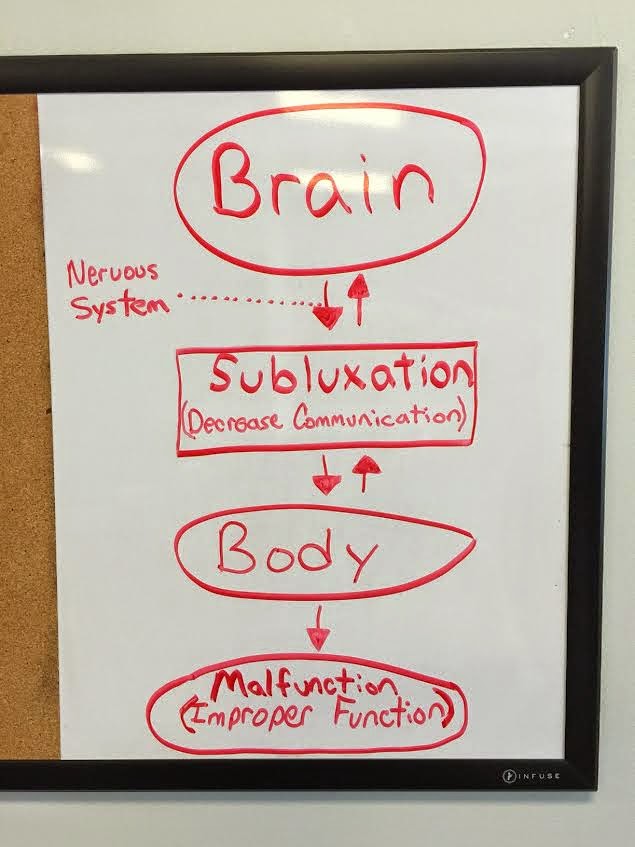 Brain
Nervous
System
Subluxation
(Decrease Communication)
Body
Malfunction
(Improper Function)
INFUSE